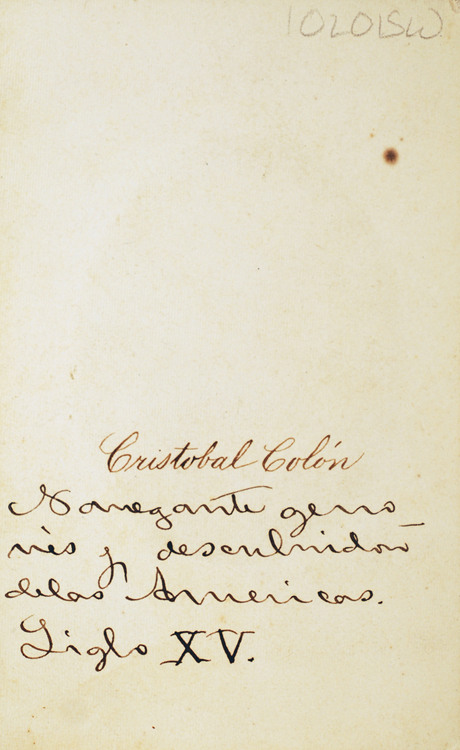 10201SW
Cristobal Colón
Navegante geno
vés y descubridor
delas Americas.
Siglo XV.